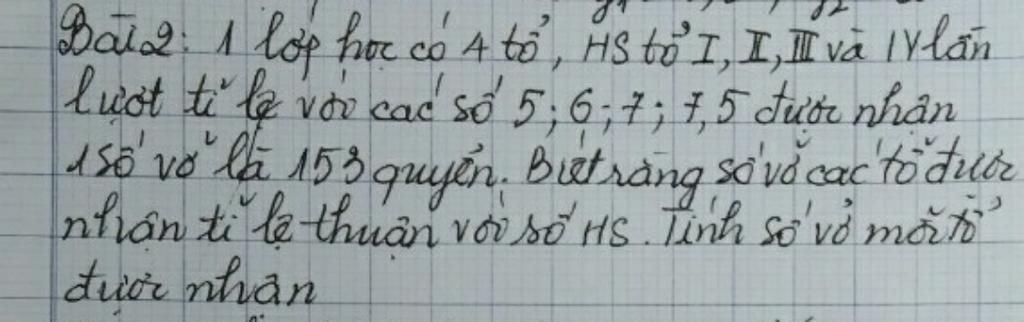 Bài 2: 1 lớp học có 4 tổ, HS tổ I, II, III và IV lần
lượt tỉ lệ với các số 5; 6; 7; 7,5 được nhận
1 số vở là 153 quyển. Biết rằng số vở các tổ được
nhận tỉ lệ thuận với số HS. Tính số vở mỗi tổ
được nhận